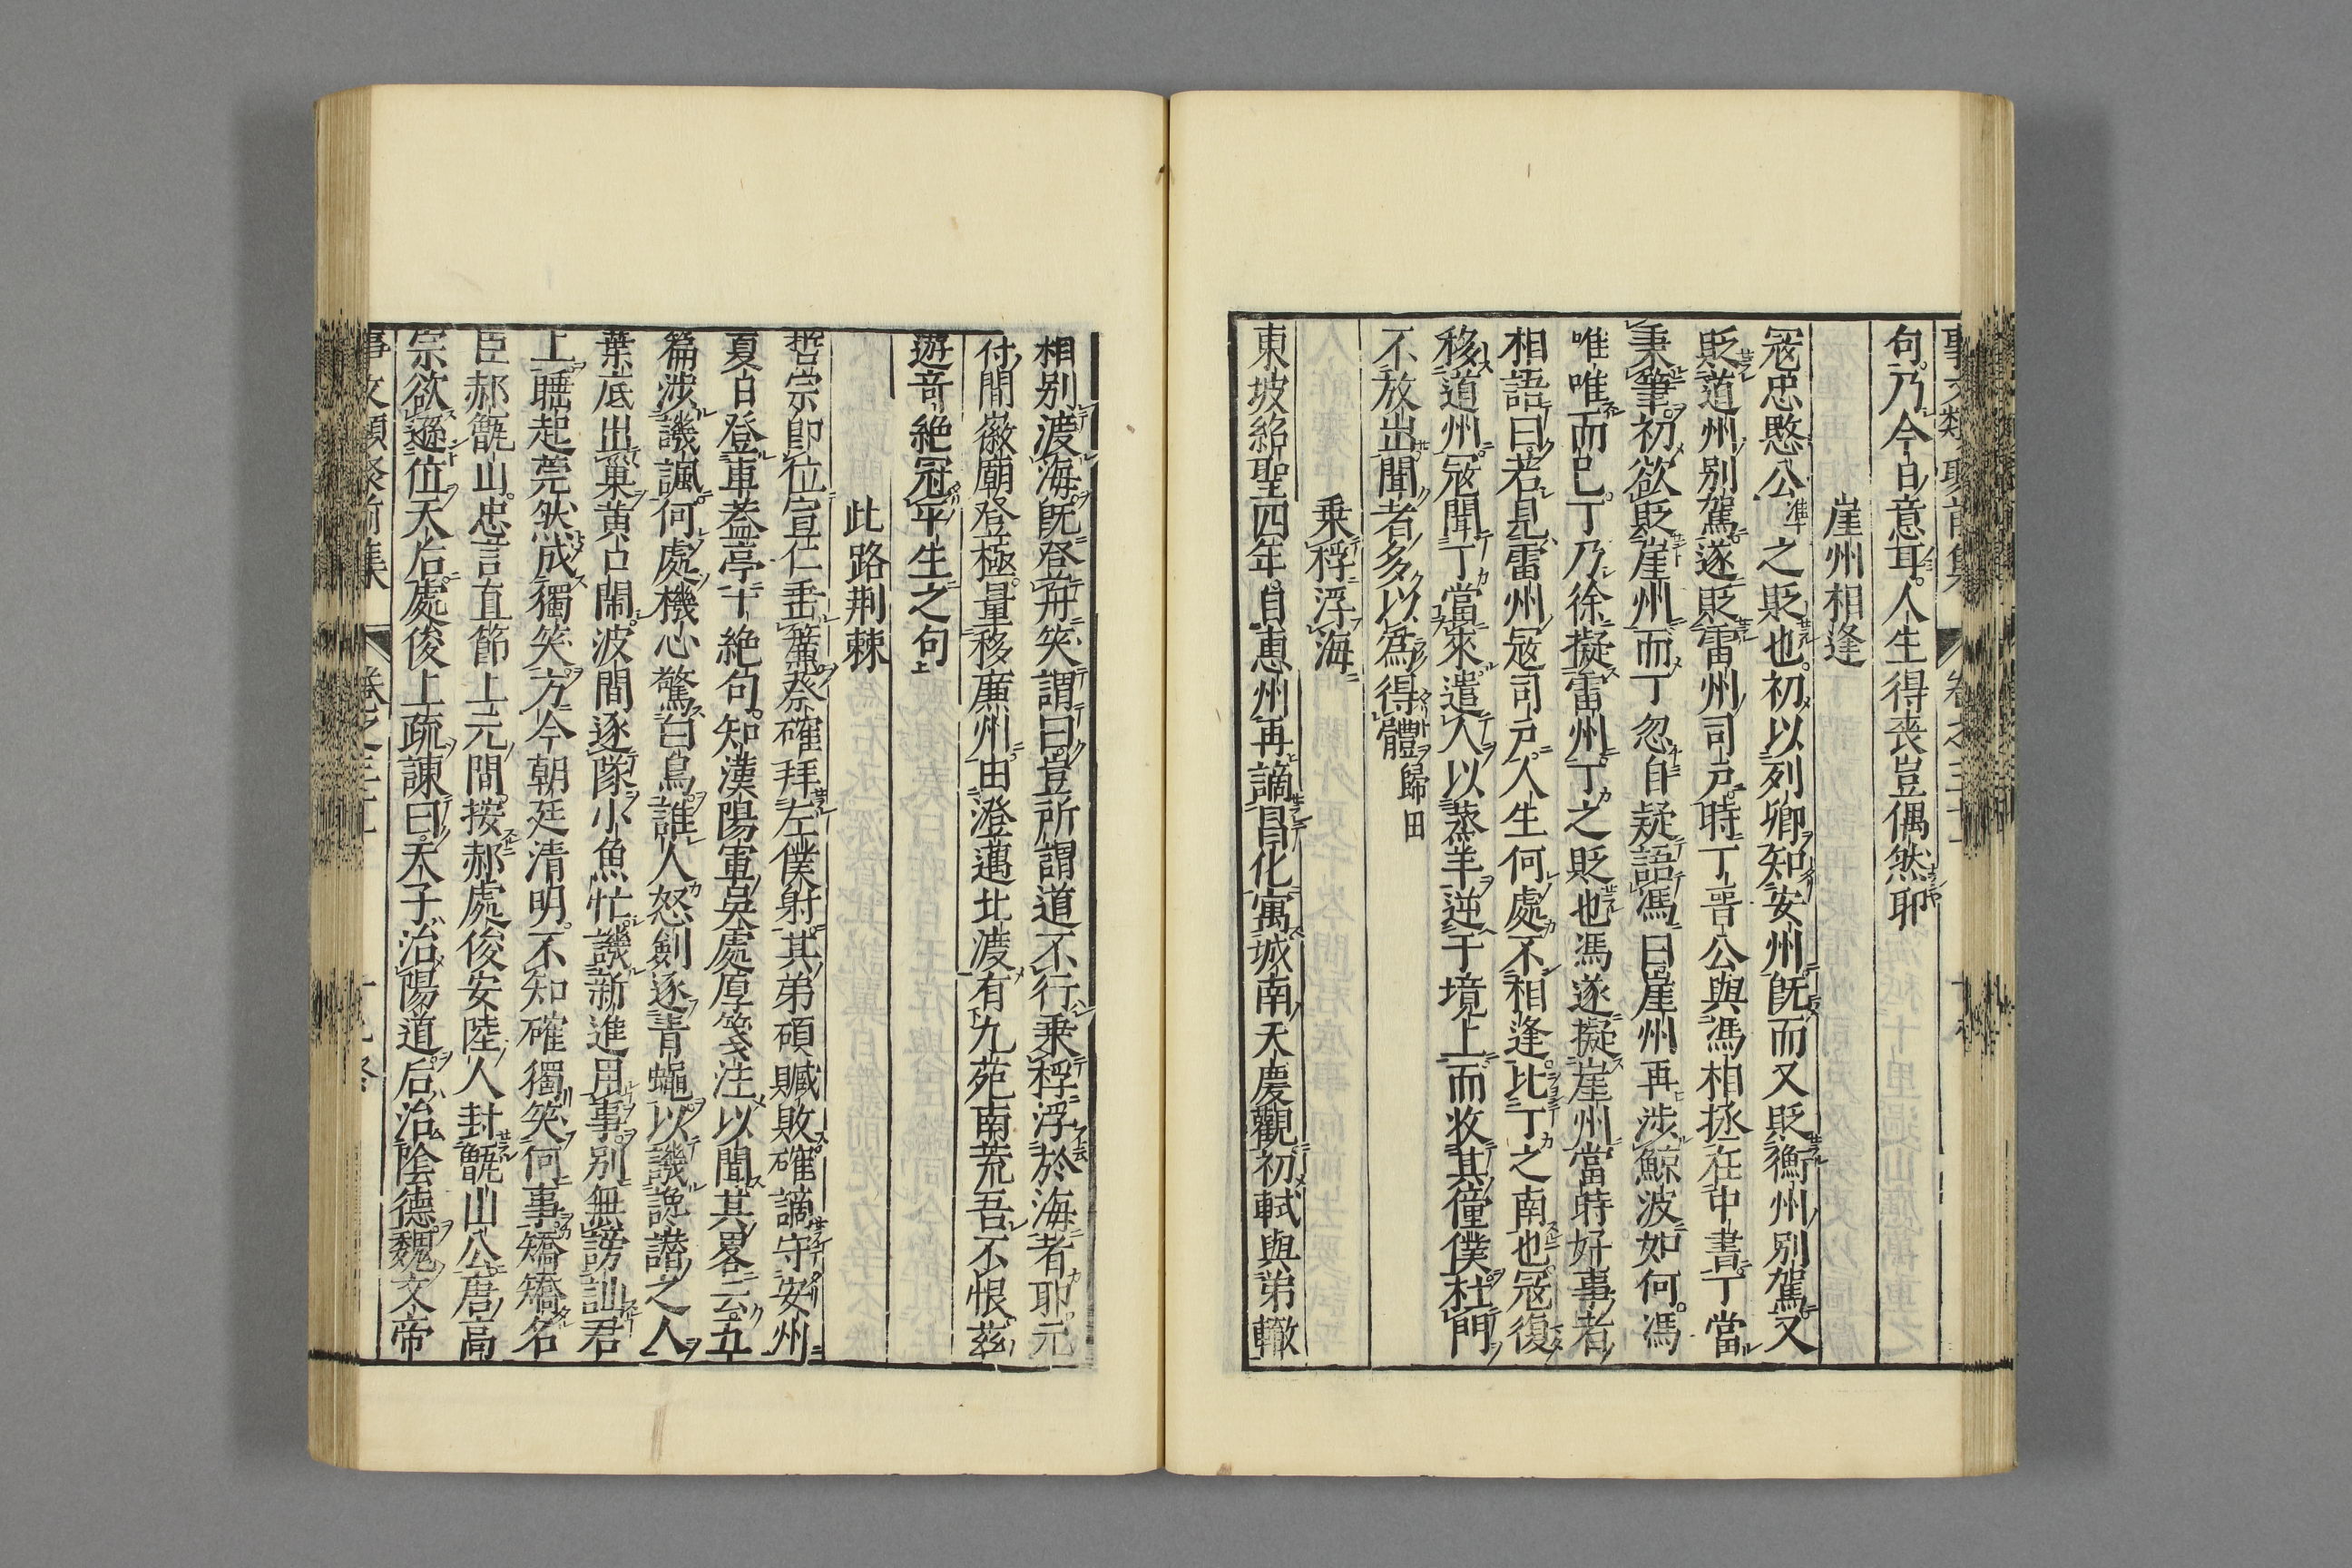 句乃今日意耳人生得喪豈偶然耶
崖州相逢
冦忠愍公凖之貶也初以列卿知安州旣而又貶衡州別駕又
貶道州別駕遂貶雷州司戶時丁晉公與馮相拯在中書丁當
秉筆初欲貶崖州而丁忽自疑語馮曰崖州再涉鯨波如何馮
唯唯而已丁乃徐擬雷州丁之貶也馮遂擬崖州當時好事者
相語曰若見雷州冦司戶人生何處不相逢比丁之南也冦復
移道州冦聞丁當來遣人以蒸羊逆于境上而收其僮僕杜門
不放出聞者多以爲得體歸田
乗桴浮海
東坡紹聖四年自惠州再謫昌化寓城南天慶觀初軾與弟轍
相别渡海旣登舟笑謂曰豈所謂道不行乗桴浮於海者耶元
付間徽廟登極量移廉州由澄邁北渡有九苑南荒吾不恨茲
遊奇絶冠平生之句上
此路荆棘
哲宗即位宣仁垂簾蔡確拜左僕射其弟碩贓敗確謫守安州
夏日登車葢亭十絶句知漢陽軍吳處厚箋注以聞其畧云五
篇涉譏諷何處機心驚白鳥誰人怒劍逐青蠅以譏讒譖之人
葉底出巢黄口鬧波間逐隊小魚忙譏新進用事別無謗訕君
上睡起莞然成獨笑方今朝廷清明不知確獨笑何事矯矯名
臣郝甑山忠言直節上元間按郝處俊安陸人封甑山公唐高
宗欲遜位天后處俊上疏諫曰天子治陽道后治陰德魏文帝